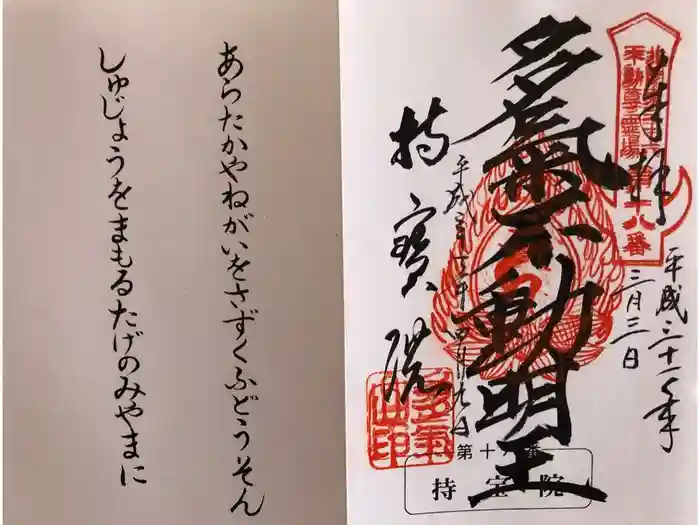 奉拝
平成三十一年
三月三日
北関東
不動尊霊場
第十八番
多氣不動明王
平成三十一年四月九日
持寳院
多氣山印
第十八番
持宝院
あらたかやねがいをさずくふどうそん
しゅじょうをまもるたげのみやまに